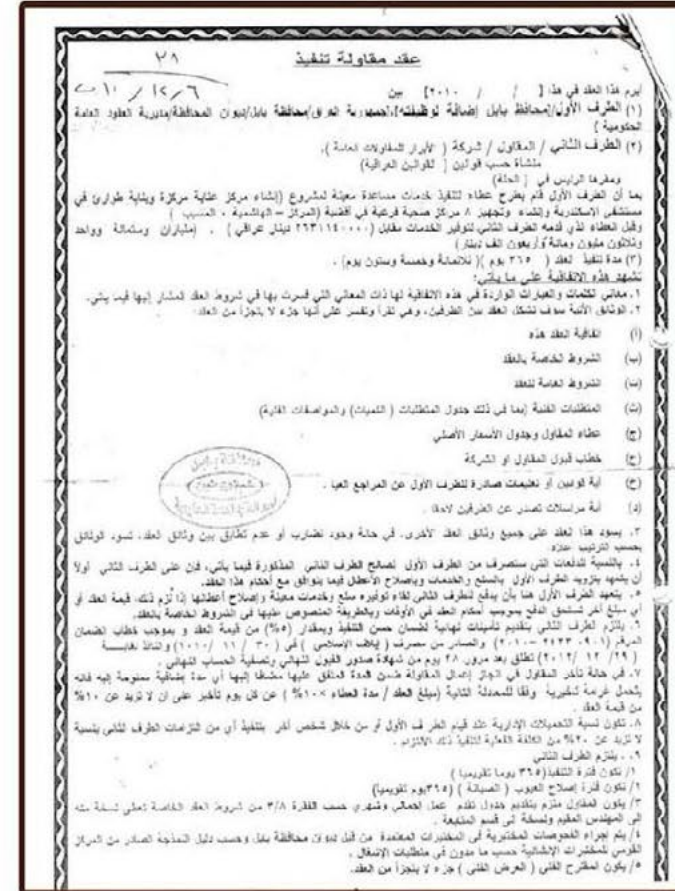 عقد مقاولة تنفيذ
٣٨
٢٠١٠/١٢/٦
ابرم هذا العقد في هذا [ / / ٢٠١٠] بين
(١) الطرف الأول/[محافظ بابل إضافة لوظيفته]،[جمهورية العراق/محافظة بابل/ديوان المحافظة/مديرية العقود العامة
الحكومية ]
(٢) الطرف الثاني / المقاول / شركة ( الأبرار للمقاولات العامة ).
منشأة حسب قوانين [ القوانين العراقية)
ومقرها الرئيس في [ الحلة)
بما أن الطرف الأول قام بطرح عطاء لتنفيذ خدمات مساعدة معينة لمشروع (إنشاء مركز عناية مركزة وبناية طوارئ في
مستشفى الاسكندرية وإنشاء وتجهيز ٨ مراكز صحية فرعية في أقضية (المركز – الهاشمية ، المسيب )
وقبل العطاء الذي قدمه الطرف الثاني لتوفير الخدمات مقابل (٢٦٣١١٤٠٠٠٠ دينار عراقي ) . (ملياران وستمائة وواحد
وثلاثون مليون ومائة وأربعون الف دينار)
(٣) مدة تنفيذ العقد ( ٣٦٥ يوم )( ثلاثمائة وخمسة وستون يوم) .
تشهد هذه الاتفاقية على ما يأتي:
١. معاني الكلمات والعبارات الواردة في هذه الاتفاقية لها ذات المعاني التي فسرت بها في شروط العقد المشار إليها فيما يأتي.
٢. الوثائق الآتية سوف تشكل العقد بين الطرفين، وهي تقرأ وتفسر على أنها جزء لا يتجزأ من العقد:
(أ) اتفاقية العقد هذه
(ب) الشروط الخاصة بالعقد
(ت) الشروط العامة للعقد
(ث) المتطلبات الفنية (بما في ذلك جدول المتطلبات ( الكميات) والمواصفات الفنية)
(ج) عطاء المقاول وجدول الأسعار الأصلي
(ح) خطاب قبول المقاول او الشركة
(خ) أية قوانين أو تعليمات صادرة للطرف الأول عن المراجع العليا .
(د) أية مراسلات تصدر عن الطرفين لاحقا .
٣. يسود هذا العقد على جميع وثائق العقد الأخرى. في حالة وجود تضارب أو عدم تطابق بين وثائق العقد، تسود الوثائق
بحسب الترتيب علاه.
٤. بالنسبة للدفعات التي ستصرف من الطرف الأول لصالح الطرف الثاني المذكورة فيما يأتي، فإن على الطرف الثاني أولا
أن يتعهد بتزويد الطرف الأول بالسلع والخدمات وبإصلاح الأعطال فيما يتوافق مع أحكام هذا العقد.
٥. يتعهد الطرف الأول هنا بأن يدفع للطرف الثاني لقاء توفيره سلع وخدمات معينة وإصلاح أعطالها إذا لزم ذلك، قيمة العقد أو
أي مبلغ آخر تستحق الدفع بموجب أحكام العقد في الأوقات وبالطريقة المنصوص عليها في الشروط الخاصة بالعقد.
٦. يلتزم الطرف الثاني بتقديم تأمينات نهائية لضمان حسن التنفيذ وبمقدار (٥%) من قيمة العقد و بموجب خطاب الضمان
المرقم والصادر من مصرف ( الإسلامي ) في ( ٣٠ / ١١ / ) والنافذ لغايـــة
( ٢٩/ ١٢ /٢٠١٢) تطلق بعد مرور ٢٨ يوم من شهادة صدور القبول النهائي وتصفية الحساب النهائي .
٧. في حالة تأخر المقاول في انجاز إعمال المقاولة ضمن المدة المتفق عليها مضافا إليها أي مدة إضافية ممنوحة إليه فانه
يتحمل غرامة تأخيرية وفقا للمعادلة الثانية (مبلغ العقد / مدة العطاء ×١٠% ) عن كل يوم تأخير على ان لا تزيد عن ١٠%
من قيمة العقد .
٨. تكون نسبة التحميلات الإدارية عند قيام الطرف الأول أو من خلال شخص آخر بتنفيذ أي من التزامات الطرف الثاني بنسبة
لا تزيد عن ٢٠% من الكلفة الفعلية لتنفيذ ذلك الالتزام .
٩. يلتزم الطرف الثاني
١/ تكون فترة التنفيذ(٣٦٥ يوما تقويميا )
٢/ تكون فترة إصلاح العيوب ( الصيانة ) (٣٦٥يوم تقويميا)
٣/ يكون المقاول ملزم بتقديم جدول تقدم عمل إجمالي وشهري حسب الفقرة ٣/٨ من شروط العقد الخاصة تعطى نسخة منه
إلى المهندس المقيم ونسخة الى قسم المتابعة .
٤/ يتم إجراء الفحوصات المختبرية في المختبرات المعتمدة من قبل ديوان محافظة بابل وحسب دليل النمذجة الصادر من المركز
القومي للمختبرات الإنشائية حسب ما مدون في متطلبات الإشغال .
٥/ يكون المقترح الفني ( العرض الفني ) جزء لا يتجزأ من العقد.